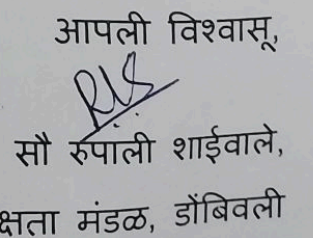 आपली विश्वासू,
सौ रुपाली शाईवाले,
क्षता मंडळ, डोंबिवली